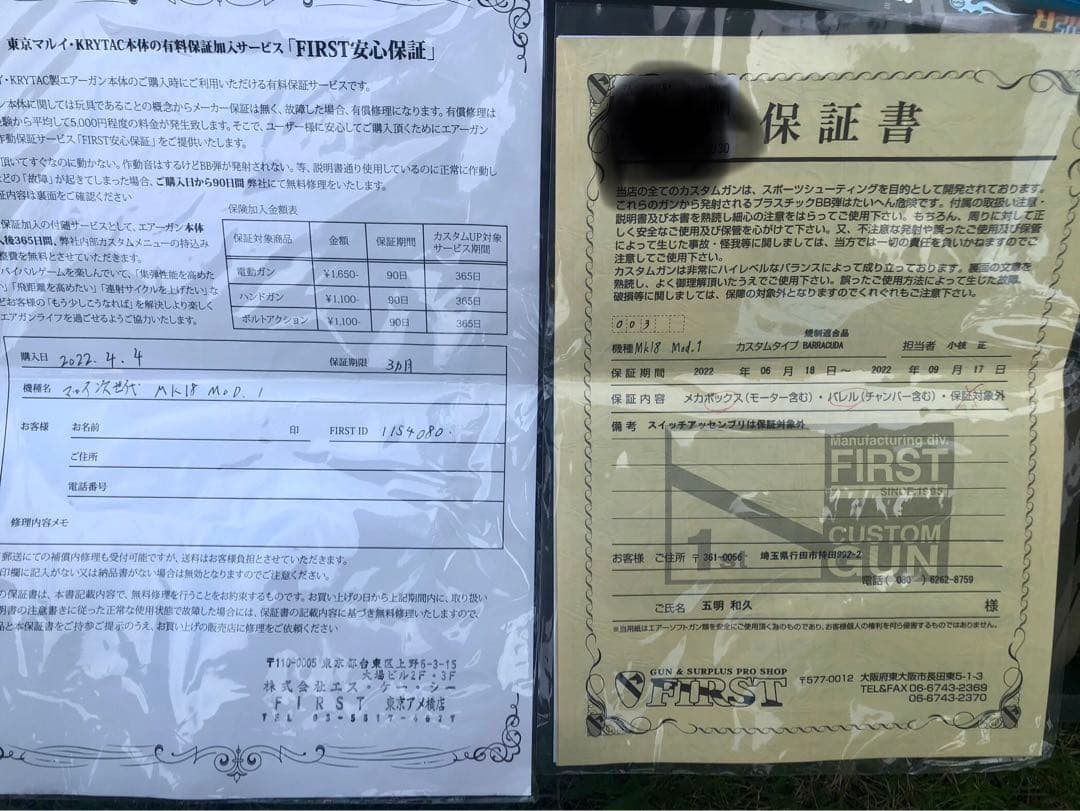 東京マルイ・KRYTAC本体の有料保証加入サービス「FIRST安心保証」
イ・KRYTAC製エアーガン本体のご購入時にご利用いただける有料保証サービスです。
ン本体に関しては玩具であることの概念からメーカー保証は無く、故障した場合、有償修理になります。有償修理は
験から平均して5,000円程度の料金が発生致します。そこで、ユーザー様に安心してご購入頂くためにエアーガン
作動保証サービス「FIRST安心保証」をご提供いたします。
頂いてすぐなのに動かない。作動音はするけどBB弾が発射されない。等、説明書通り使用しているのに正常に作動し
どの「故障」が起きてしまった場合、ご購入日から90日間 弊社にて無料修理をいたします。
証内容は裏面をご確認ください
保証加入の付随サービスとして、エアーガン本体
入後365日間、弊社内部カスタムメニューの持込み
費を無料とさせていただきます。
バイバルゲームを楽しんでいて、「集弾性能を高めた
い」「飛距離を高めたい」「連射サイクルを上げたい」な
どお客様の「もう少しこうなれば」を解決しより楽しく
エアガンライフを過ごせるようご協力いたします。
保険加入金額表
保証対象商品 金額 保証期間 カスタムUP対象サービス期間
電動ガン ¥1,650- 90日 365日
ハンドガン ¥1,100- 90日 365日
ボルトアクション ¥1,100- 90日 365日
購入日 2022.4.4 保証期限 3カ月
機種名 マルイ次世代 MK18 MOD.1
お客様 お名前 印 FIRST ID 1154080.
ご住所
電話番号
修理内容メモ
郵送にての補償内修理も受付可能ですが、送料はお客様負担とさせていただきます。
印欄に記入がない又は納品書がない場合は無効となりますのでご注意ください。
の保証書は、本書記載内容で、無料修理を行うことをお約束するものです。お買い上げの日から上記期間内に、取り扱い
明書の注意書きに従った正常な使用状態で故障した場合には、保証書の記載内容に基づき無料修理いたしますので、
品と本保証書をご持参ご提示のうえ、お買い上げの販売店に修理をご依頼ください
〒110-0005 東京都台東区上野6-3-15
大場ビル2F・3F
株式会社エス・ケー・シー
FIRST 東京アメ横店
保証書
当店の全てのカスタムガンは、スポーツシューティングを目的として開発されております。
これらのガンから発射されるプラスチックBB弾はたいへん危険です。付属の取扱い注意・
説明書及び本書を熟読し細心の注意をはらってご使用下さい。もちろん、周りに対して正
しく安全なご使用及び保管を心がけて下さい。又、不注意な発射や誤ったご使用及び保管
によって生じた事故・怪我等に関しましては、当方では一切の責任を負いかねますのでご
注意してご使用下さい。
カスタムガンは非常にハイレベルなバランスによって成り立っております。裏面の文章を
熟読し、よく御理解頂いたうえでご使用下さい。誤ったご使用方法によって生じた故障、
破損等に関しましては、保障の対象外となりますのでくれぐれもご注意下さい。
003
機種 Mk18 Mod.1 カスタムタイプ 規制適合品 BARRACUDA 担当者 小枝 正
保証期間 2022 年 06 月 18 日〜 2022 年 09 月 17 日
保証内容 メカボックス(モーター含む)・バレル(チャンバー含む)・保証対象外
備考 スイッチアッセンブリは保証対象外
Manufacturing div.
FIRST
SINCE 1985
CUSTOM
GUN
1st
お客様 ご住所 〒361-0056 埼玉県行田市持田992-2
電話( 080 ) 6262-8759
ご氏名 五明 和久 様
※当用紙はエアーソフトガン類を安全にご使用頂く為のものであり、お客様個人の権利を何ら侵害するものではありません。
GUN & SURPLUS PRO SHOP
FIRST
〒577-0012 大阪府東大阪市長田東5-1-3
TEL&FAX 06-6743-2369
06-6743-2370